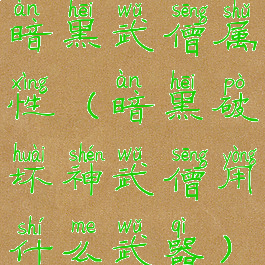 àn hēi wǔ sēng shǔ
暗黑武僧属
xìng àn hēi pò
性(暗黑破
huài shén wǔ sēng yòng
坏神武僧用
shí me wǔ qì
什么武器)